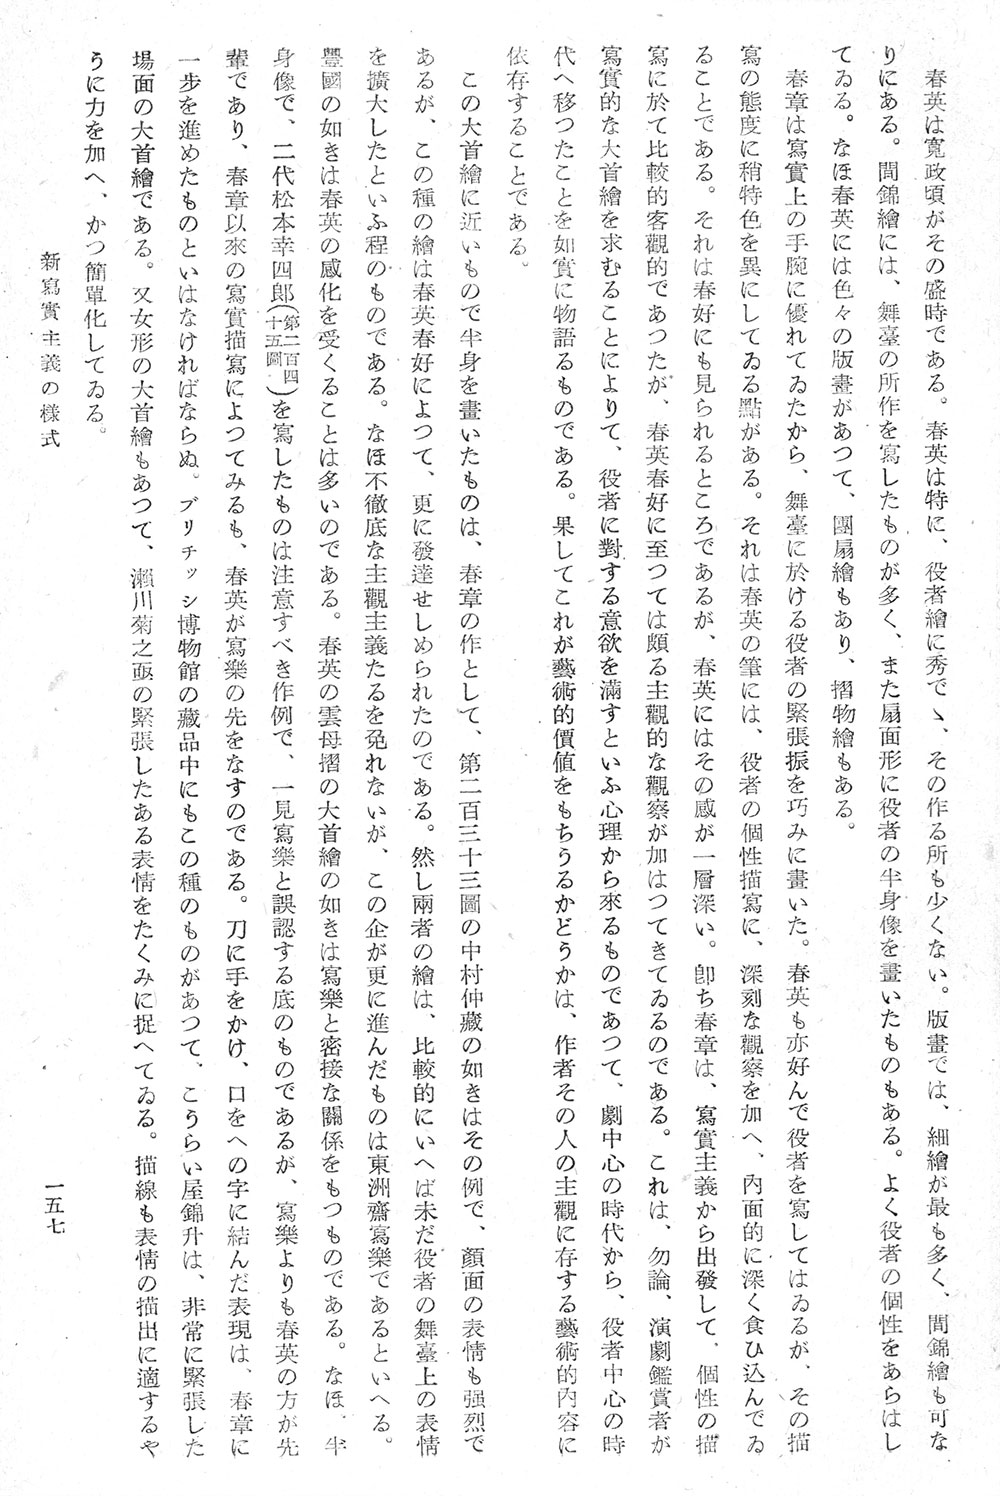 春英は寬政頃がその盛時である。春英は特に、役者繪に秀でゝ、その作る所も少くない。版畫では、細繪が最も多く、間錦繪も可な
りにある。間錦繪には、舞臺の所作を寫したものが多く、また扇面形に役者の半身像を畫いたものもある。よく役者の個性をあらはし
てゐる。なほ春英には色々の版畫があつて、團扇繪もあり、摺物繪もある。
春章は寫實上の手腕に優れてゐたから、舞臺に於ける役者の緊張振を巧みに畫いた。春英も亦好んで役者を寫してはゐるが、その描
寫の態度に稍特色を異にしてゐる點がある。それは春英の筆には、役者の個性描寫に、深刻な觀察を加へ、內面的に深く食ひ込んでゐ
ることである。それは春好にも見られるところであるが、春英にはその感が一層深い。卽ち春章は、寫實主義から出發して、個性の描
寫に於て比較的客觀的であつたが、春英春好に至つては頗る主觀的な觀察が加はつてきてゐるのである。これは、勿論、演劇鑑賞者が
寫實的な大首繪を求むることによりて、役者に對する意欲を滿すといふ心理から來るものであつて、劇中心の時代から、役者中心の時
代へ移つたことを如實に物語るものである。果してこれが藝術的價値をもちうるかどうかは、作者その人の主觀に存する藝術的內容に
依存することである。
この大首繪に近いもので半身を畫いたものは、春章の作として、第二百三十三圖の中村仲藏の如きはその例で、顏面の表情も强烈で
あるが、この種の繪は春英春好によつて、更に發達せしめられたのである。然し兩者の繪は、比較的にいへば未だ役者の舞臺上の表情
を擴大したといふ程のものである。なほ不徹底な主觀主義たるを免れないが、この企が更に進んだものは東洲齋寫樂であるといへる。
豐國の如きは春英の感化を受くることは多いのである。春英の雲母摺の大首繪の如きは寫樂と密接な關係をもつものである。なほ、半
身像で、二代松本幸四郞(第二百四十五圖)を寫したものは注意すべき作例で、一見寫樂と誤認する底のものであるが、寫樂よりも春英の方が先
輩であり、春章以來の寫實描寫によつてみるも、春英が寫樂の先をなすのである。刀に手をかけ、口をへの字に結んだ表現は、春章に
一步を進めたものといはなければならぬ。ブリチッシ博物館の藏品中にもこの種のものがあつて、こうらい屋錦升は、非常に緊張した
場面の大首繪である。又女形の大首繪もあつて、瀨川菊之亟の緊張したある表情をたくみに捉へてゐる。描線も表情の描出に適するや
うに力を加へ、かつ簡單化してゐる。
新寫實主義の樣式
一五七